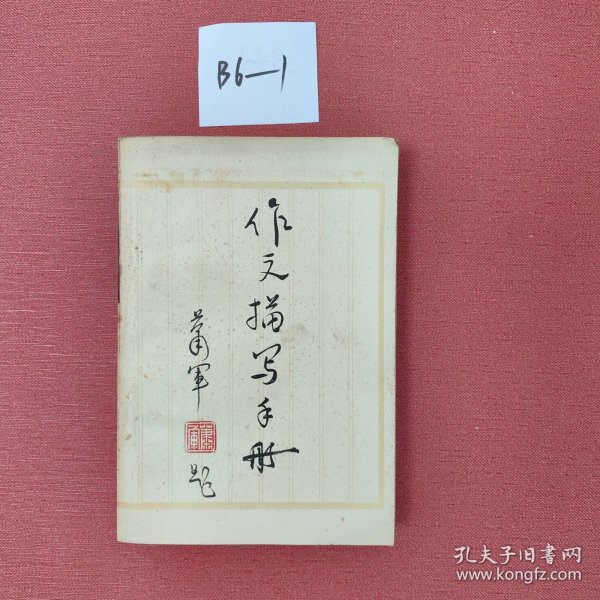 B6—1
作文描写手册
萧军
萧军
题
孔夫子旧书网
www.kongfz.com